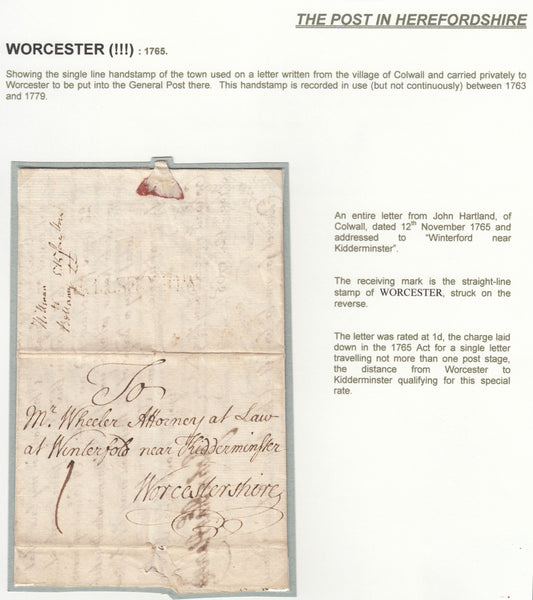 THE POST IN HEREFORDSHIRE
WORCESTER (!!!) : 1765.
Showing the single line handstamp of the town used on a letter written from the village of Colwall and carried privately to
Worcester to be put into the General Post there. This handstamp is recorded in use (but not continuously) between 1763
and 1779.
An entire letter from John Hartland, of
Colwall, dated 12th November 1765 and
addressed to "Winterford near
Kidderminster".
The receiving mark is the straight-line
stamp of WORCESTER, struck on the
reverse.
The letter was rated at 1d, the charge laid
down in the 1765 Act for a single letter
travelling not more than one post stage,
the distance from Worcester to
Kidderminster qualifying for this special
rate.
to
To
Mr. Wheeler Attorney at Law
at Winterfold near Kidderminster
Worcestershire
1